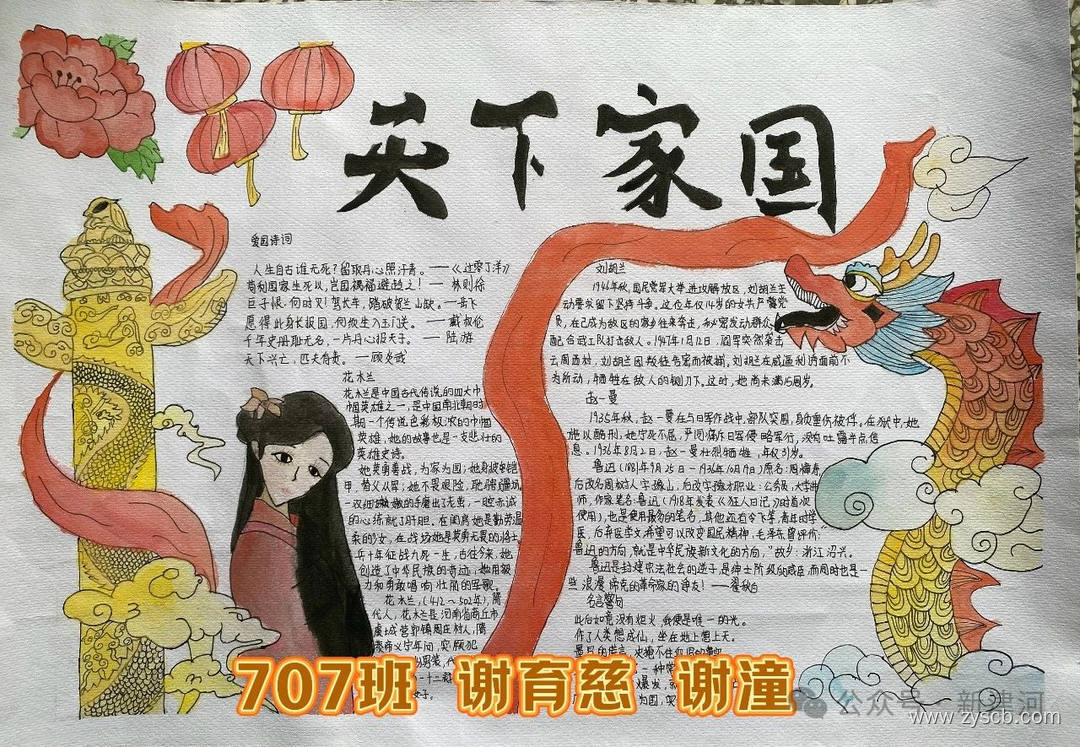 天下家国
爱国诗词
人生自古谁无死？留取丹心照汗青。——《过零丁洋》
苟利国家生死以，岂因祸福避趋之！—— 林则徐
臣子恨，何时灭！驾长车，踏破贺兰山缺。——岳飞
愿得此身长报国，何须生入玉门关。—— 戴叔伦
千年史册耻无名，一片丹心报天子。—— 陆游
天下兴亡，匹夫有责。——顾炎武
花木兰
花木兰是中国古代传说的四大巾
帼英雄之一，是中国南北朝时
期一个传说色彩极浓的巾帼
英雄，她的故事也是一支悲壮的
英雄史诗。
她英勇善战，为家为国；她身披铠
甲，替父从军；她不畏艰险，驰骋疆场
的心
柔的女，在战场她是英勇无畏的将士
兵十年征战九死一生，古往今来，她
创造了中华民族的奇迹，她用毅
力和勇敢唱响壮丽的军歌。
花木兰，（412～502年），隋
代人，花木兰是河南省商丘市
虞城营郭镇周庄村人，隋
恭帝义宁年间，突厥犯
刘胡兰
1946年秋，国民党军大举进攻解放区，刘胡兰主
动要求留下坚持斗争。这位年仅14岁的女共产党
员，在已成为敌区的家乡往来奔走，秘密发动群众，
配合武工队打击敌人。1947年1月12日，阎军突然袭击
云周西村，刘胡兰因叛徒告密而被捕。刘胡兰在威逼利诱面前不
为所动，牺牲在敌人的铡刀下。这时，她尚未满15周岁。
赵一曼
1935年秋，赵一曼在与日军作战中，部队突围，身负重伤被俘。在狱中，她
施以酷刑，她宁死不屈，严词痛斥日军侵略罪行，没有吐露半点信
息。1936年8月2日，赵一曼壮烈牺牲，年仅31岁。
鲁迅（1881年9月25日—1936年10月19日）原名：周樟寿
后改名周树人，字豫山，后改字豫才职业：公务员，大学讲
师，作家笔名：鲁迅（1918年发表《狂人日记》时首次
使用），也是使用最多的笔名，其他还有令飞等，青年时学
医，后弃医学文，希望可以改变国民精神，毛泽东曾评价：
鲁迅的方向，就是中华民族新文化的方向，"故乡：浙江绍兴。
鲁迅是封建宗法社会的逆子是绅士阶级的贰臣，而同时也是一
些浪漫蒂克的革命家的诤友！——瞿秋白
名言警句
此后如竟没有炬火，我便是唯一的光。
作了人类想成仙，坐在地上想上天。
707班 谢育慈 谢潼
公众号·新建河
www.zyscb.com